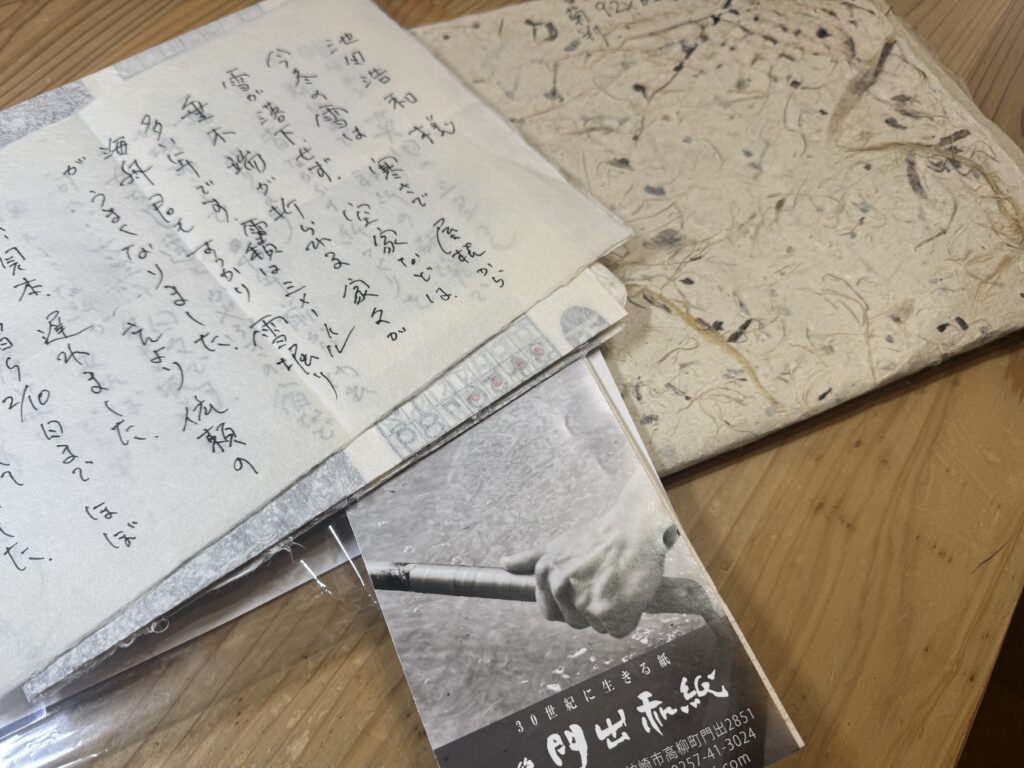 池田浩和 様
今冬の雪は 寒さで 屋根から
雪が落下せず、空家などは、
垂木端が折られる家々が
多い年です 積雪は三メートル
すっかり 雪堀り
が うまくなりました。
依頼の
見本 遅れました。
2/10日まで ほぼ
した。
菊
30世紀に生きる紙
門出和紙
崎市高柳町門出2851
0257-41-3024
.com